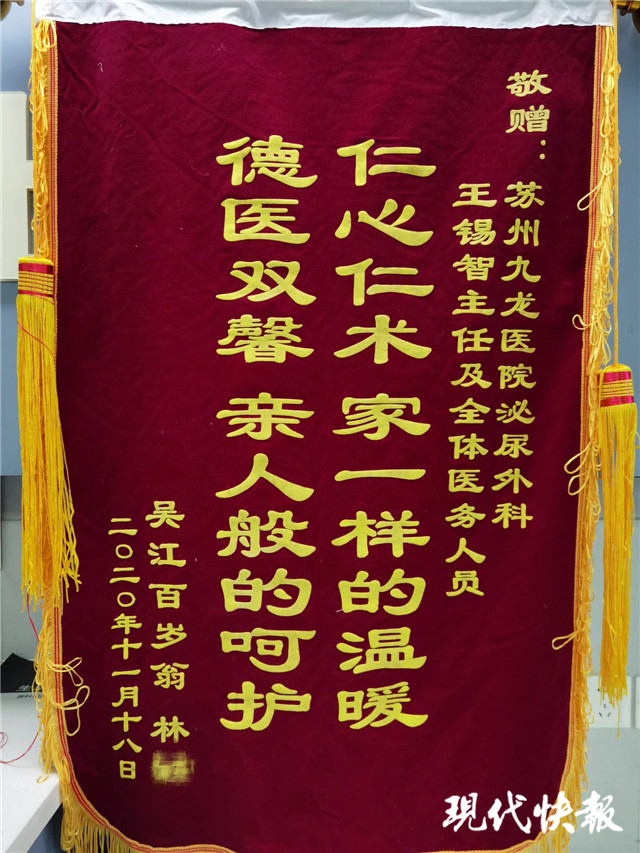 敬赠：苏州九龙医院泌尿外科
王锡智主任及全体医务人员
仁心仁术 家一样的温暖
德医双馨 亲人般的呵护
吴江百岁翁 林
二〇二〇年十一月十八日
现代快報